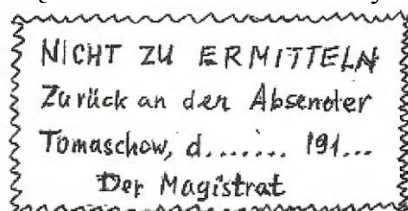 NICHT ZU ERMITTELN
Zurück an den Absender
Tomaschow, d........ 191...
Der Magistrat